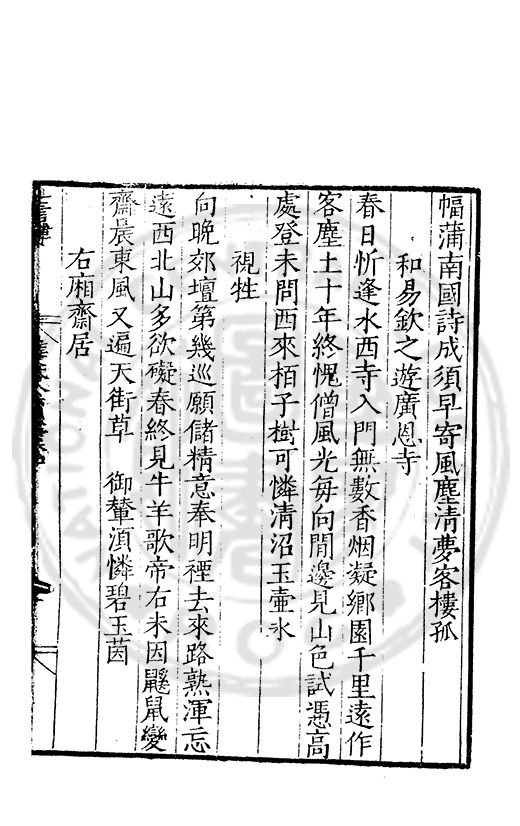 幅蒲南國詩成須早寄風塵清夢客樓孤
和易欽之遊廣恩寺
春日忻逢水西寺入門無數香烟凝鄉園千里遠作
客塵土十年終愧僧風光每向閒邊見山色試憑高
處登未問西來栢子樹可憐清沼玉壺氷
視牲
向晚郊壇第幾巡願儲精意奉明禋去來路熟渾忘
遠西北山多欲礙春終見牛羊歌帝右未因鼷鼠變
齋晨東風又遍天街草 御輦須憐碧玉茵
右廂齋居